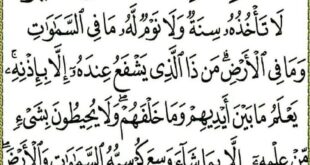 لَا تَأْخُذُهُۥ سِنَةٌ وَلَا نَوْمٌ لَّهُۥ مَا فِى ٱلسَّمَٰوَٰتِ
وَمَا فِى ٱلْأَرْضِ مَن ذَا ٱلَّذِى يَشْفَعُ عِندَهُۥٓ إِلَّا بِإِذْنِهِۦ
يَعْلَمُ مَا بَيْنَ أَيْدِيهِمْ وَمَا خَلْفَهُمْ وَلَا يُحِيطُونَ بِشَىْءٍ
مِّنْ عِلْمِهِۦٓ إِلَّا بِمَا شَآءَ وَسِعَ كُرْسِيُّهُ ٱلسَّمَٰوَٰتِ وَٱلْأَرْضَ